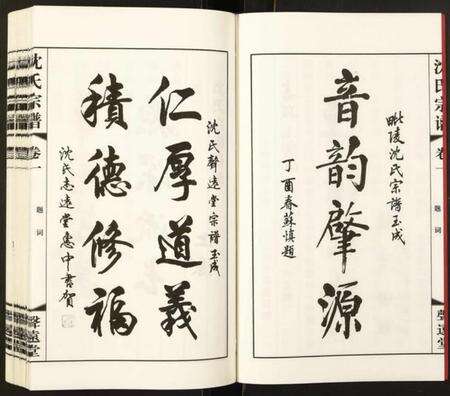 沈氏宗譜
卷一
題詞
聲遠堂
毗陵沈氏宗譜玉成
音韵肇源
丁酉春蘇慎題
沈氏聲遠堂宗譜玉成
仁厚道義
積德修福
沈氏志遠堂惠中書賀
沈氏宗譜
卷一
題詞
聲遠堂